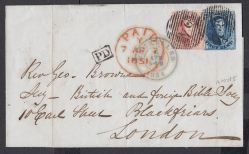 PAID
1851
PD
Revd Geo. Browne
Secy British and foreign Bible Socy
10 Earl Street Blackfriars
London